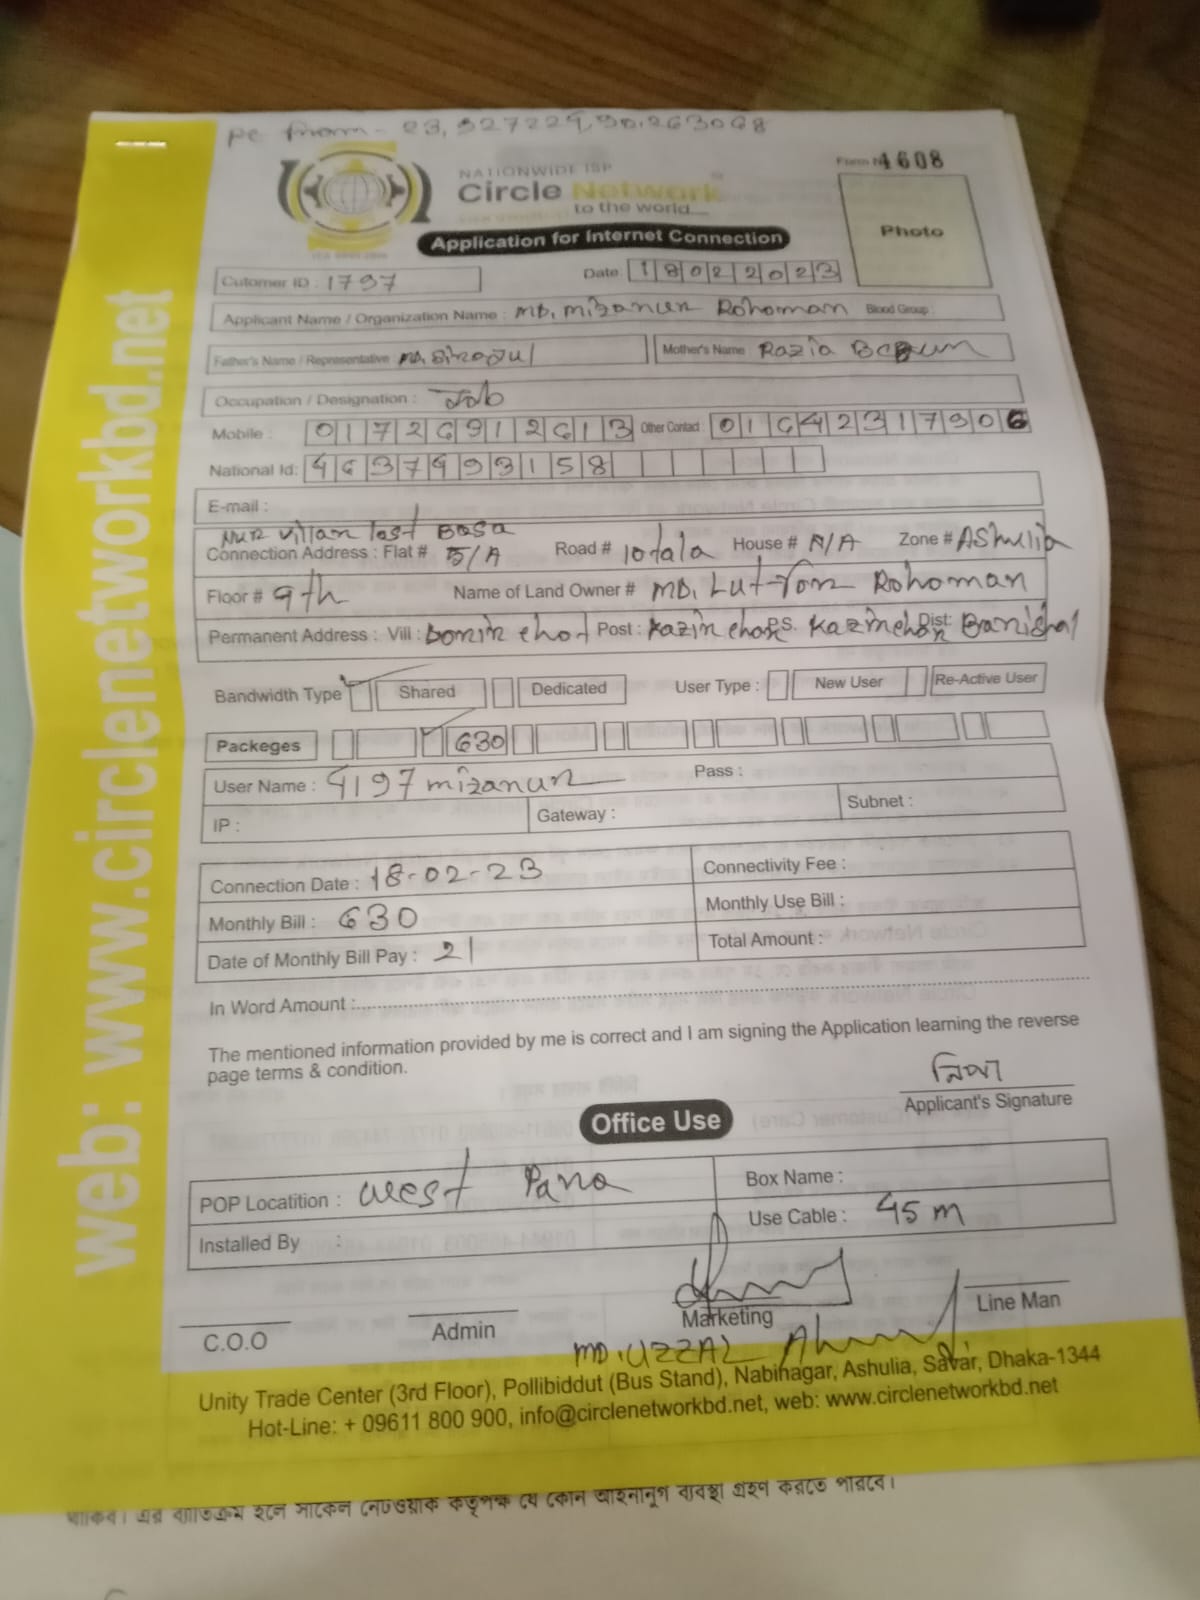 Pc from - 23,927229,90.263068
NATIONWIDE ISP
Circle Network
to the world....
Form N 4608
Photo
Application for Internet Connection
Cutomer ID : 1797 Date: 18022023
Applicant Name / Organization Name : MD. Mizanur Rohoman Blood Group :
Father's Name / Representative MD. Sirajul Mother's Name : Razia Begum
Occupation / Designation : Job
Mobile : 01726912613 Other Contact : 01642317906
National Id: 4637493158
E-mail :
Nur Villan last Basa
Connection Address : Flat # 5/A Road # 10 tala House # N/A Zone # AShulia
Floor # 9th Name of Land Owner # MD. Lut-for Rohoman
Permanent Address : Vill : Post : P.S. Dist:
Bandwidth Type Shared Dedicated User Type : New User Re-Active User
Packeges 630
User Name : 4197mizanur Pass :
IP : Gateway : Subnet :
Connection Date : 18-02-23 Connectivity Fee :
Monthly Bill : 630 Monthly Use Bill :
Date of Monthly Bill Pay : 21 Total Amount :
In Word Amount :
The mentioned information provided by me is correct and I am signing the Application learning the reverse
page terms & condition.
Applicant's Signature
Office Use
POP Locatition : West Para Box Name :
Installed By : Use Cable : 45 m
C.O.O Admin Marketing Line Man
MD. UZZAL Ahmed
Unity Trade Center (3rd Floor), Pollibiddut (Bus Stand), Nabinagar, Ashulia, Savar, Dhaka-1344
Hot-Line: + 09611 800 900, info@circlenetworkbd.net, web: www.circlenetworkbd.net
web: www.circlenetworkbd.net
থাকিব। এর ব্যতিক্রম হলে সার্কেল নেটওয়ার্ক কর্তৃপক্ষ যে কোন আইনানুগ ব্যবস্থা গ্রহণ করতে পারবে।